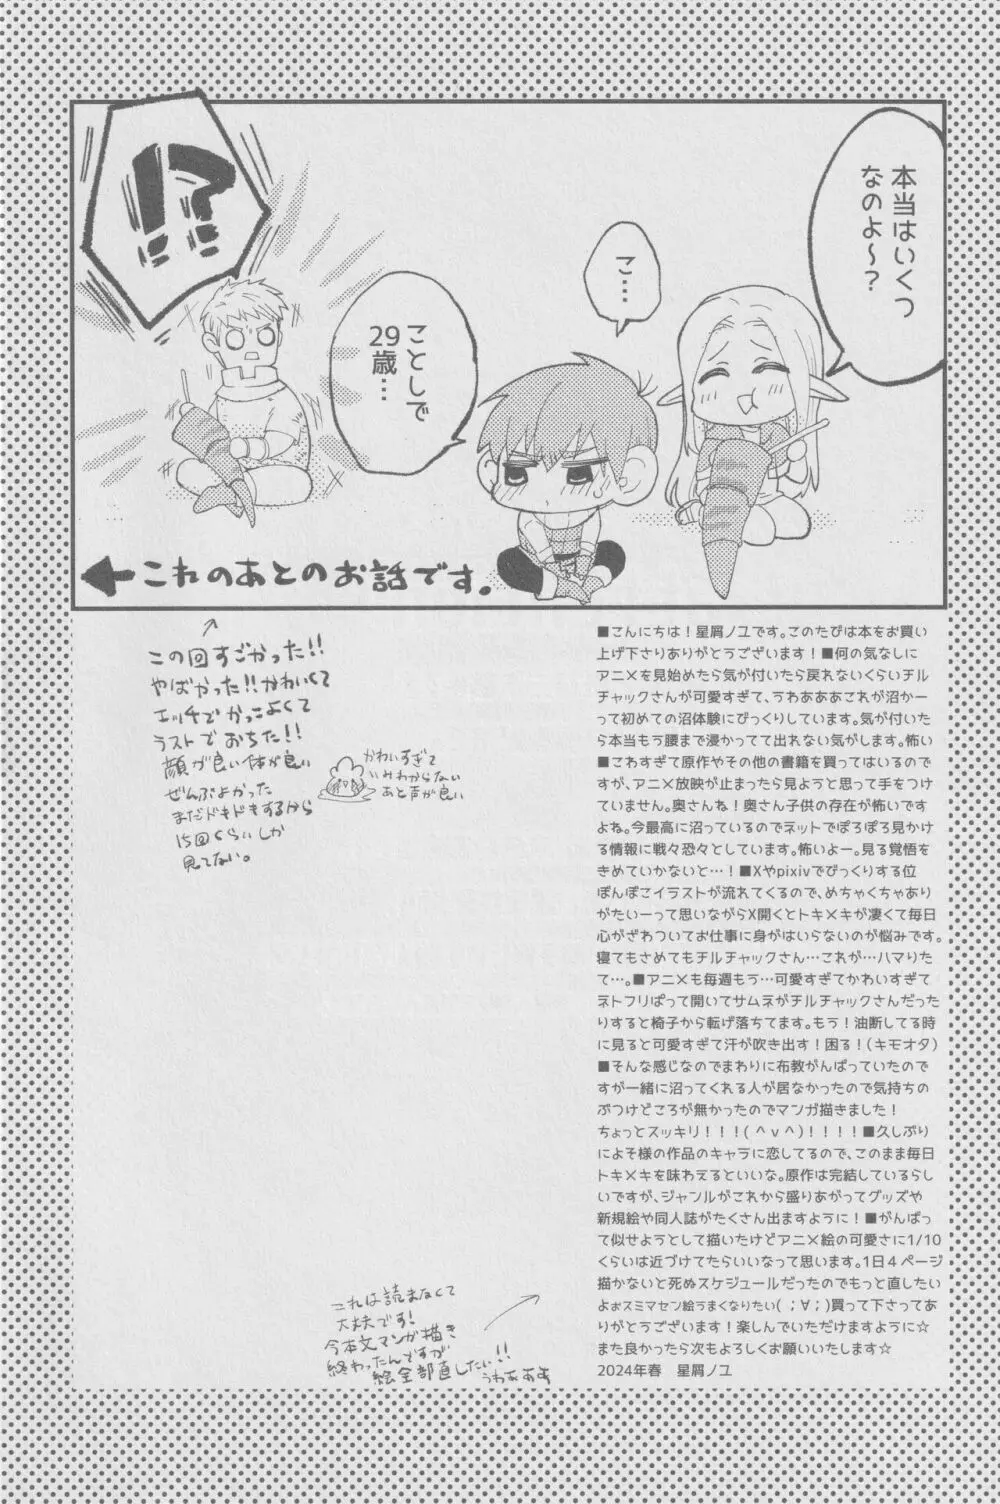 本当はいくつ
なのよ～？
こ…
ことしで
29歳…
!?
←これのあとのお話です。
この回すごかった!!
やばかった!!かわいくて
エッチでかっこよくて
ラストでおちた!!
顔が良い体が良い
ぜんぶよかった
まだドキドキするから
15回くらいしか
見てない。
かわいすぎて
いみわからない
あと声が良い
■こんにちは！星屑ノユです。このたびは本をお買い
上げ下さりありがとうございます！■何の気なしに
アニメを見始めたら気が付いたら戻れないくらいチル
チャックさんが可愛すぎて、うわあああこれが沼かー
って初めての沼体験にびっくりしています。気が付いた
ら本当もう腰まで浸かってて出れない気がします。怖い
■こわすぎて原作やその他の書籍を買ってはいるので
すが、アニメ放映が止まったら見ようと思って手をつけ
ていません。奥さんね！奥さん子供の存在が怖いです
よね。今最高に沼っているのでネットでぽろぽろ見かけ
る情報に戦々恐々としています。怖いよー。見る覚悟を
きめていかないと…！■Xやpixivでびっくりする位
ぽんぽこイラストが流れてくるので、めちゃくちゃあり
がたいーって思いながらX開くとトキメキが凄くて毎日
心がざわついてお仕事に身がはいらないのが悩みです。
寝てもさめてもチルチャックさん…これが…ハマりた
て…。■アニメも毎週もう…可愛すぎてかわいすぎて
ネトフリぱって開いてサムネがチルチャックさんだった
りすると椅子から転げ落ちてます。もう！油断してる時
に見ると可愛すぎて汗が吹き出す！困る！(キモオタ)
■そんな感じなのでまわりに布教がんばっていたので
すが一緒に沼ってくれる人が居なかったので気持ちの
ぶつけどころが無かったのでマンガ描きました！
ちょっとスッキリ！！！(＾ｖ＾)！！！！■久しぶり
によそ様の作品のキャラに恋してるので、このまま毎日
トキメキを味わえるといいな。原作は完結しているらし
いですが、ジャンルがこれから盛りあがってグッズや
新規絵や同人誌がたくさん出ますように！■がんばっ
て似せようとして描いたけどアニメ絵の可愛さに1/10
くらいは近づけてたらいいなって思います。1日４ページ
描かないと死ぬスケジュールだったのでもっと直したい
よぉスミマセン絵うまくなりたい(；∀；)買って下さってあ
りがとうございます！楽しんでいただけますように☆
また良かったら次もよろしくお願いいたします☆
2024年春　星屑ノユ
これは読まなくて
大丈夫です！
今本文マンガ描き
終わったんですが
絵全部直したい!!
うわあああ